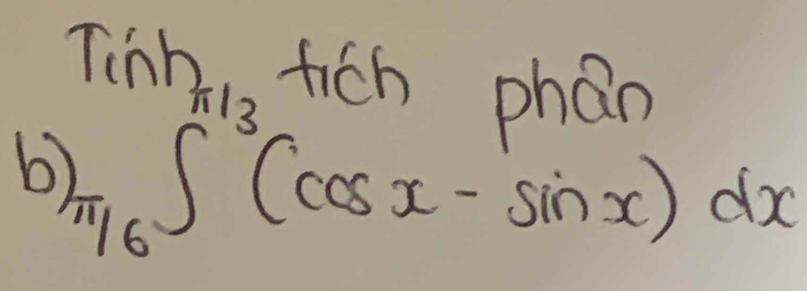 Tính tích phân
b) π/6 ∫ π/3 (cos x - sin x) dx